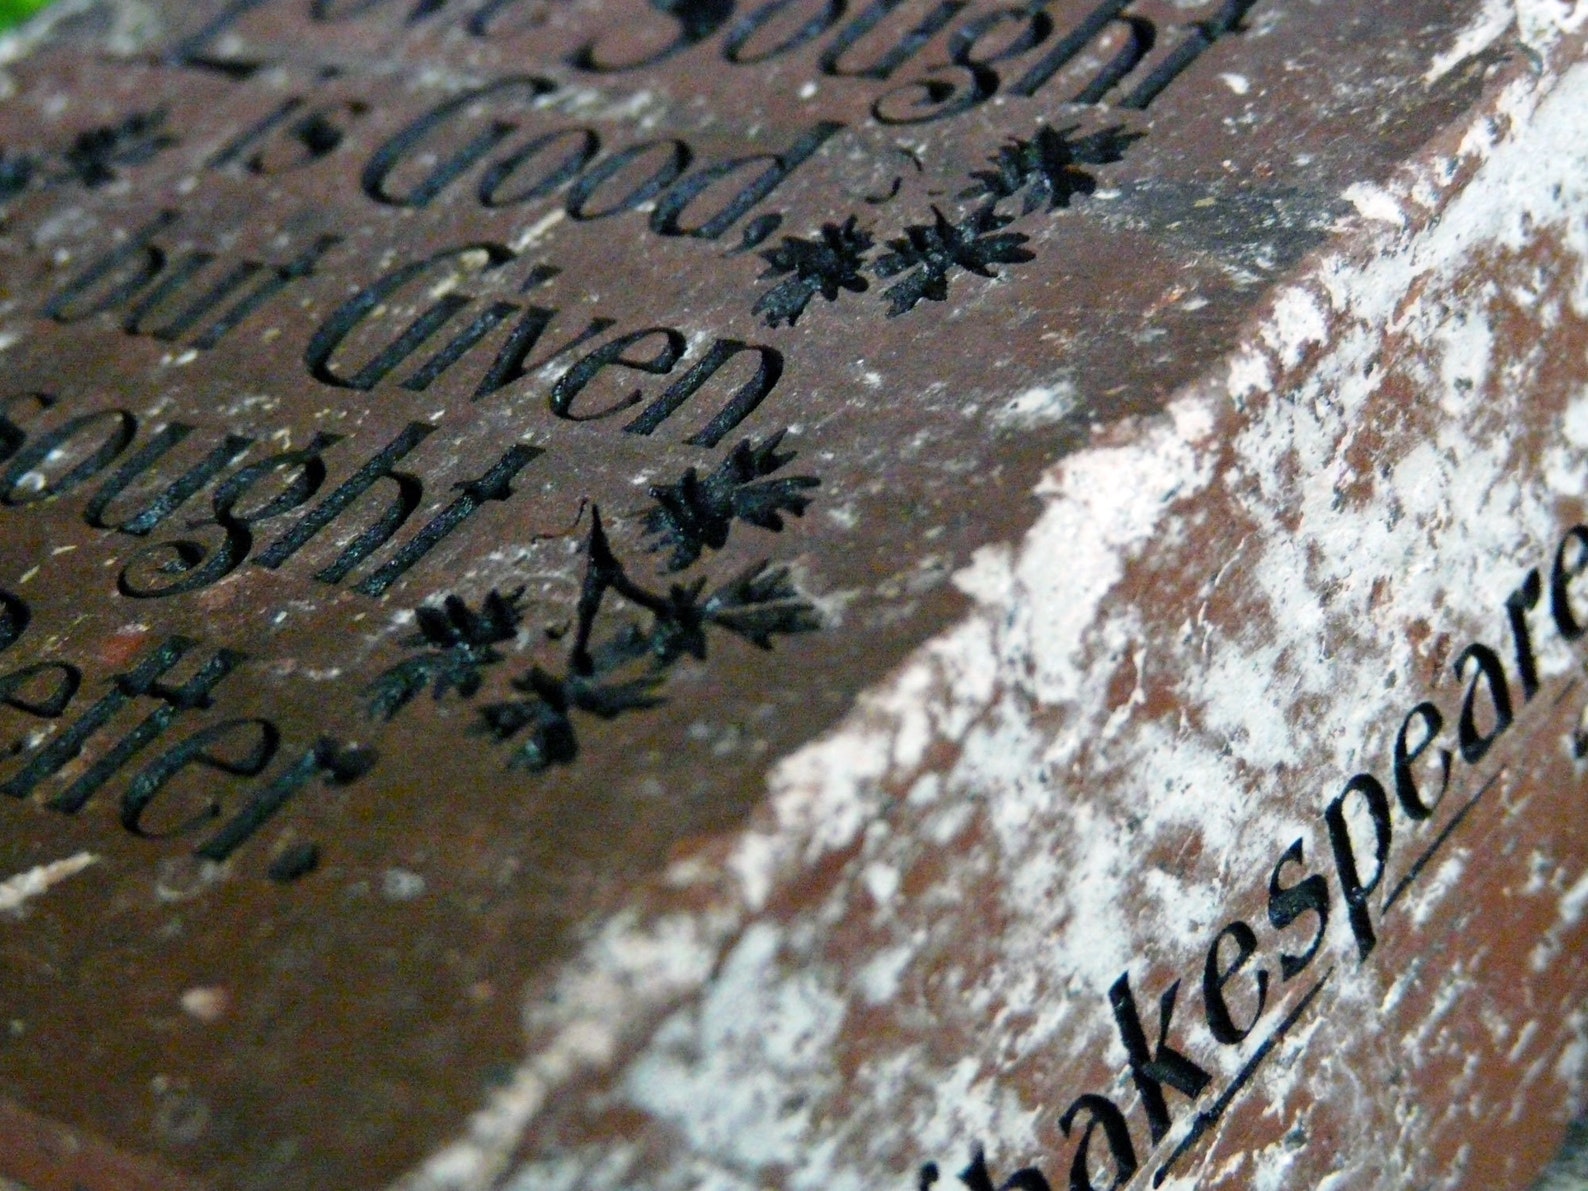 Love Sought
is Good,
but Given
sought
Better.
Shakespeare